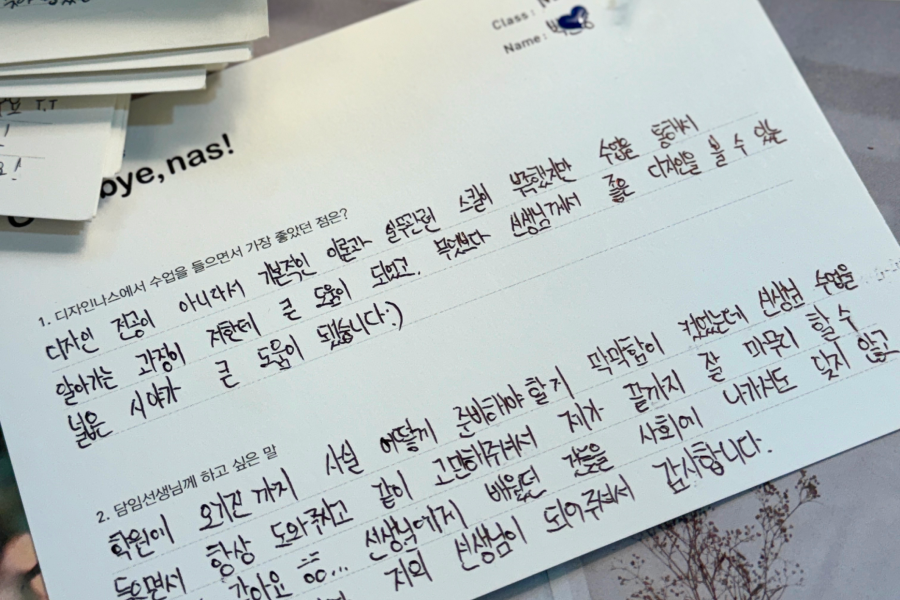 Class:
Name:
bye, nas!
1. 디자인나스에서 수업을 들으면서 가장 좋았던 점은?
디자인 전공이 아니라서 기본적인 이론과 실무관련 스킬이 부족했지만 수업을 통해서
알아가는 과정이 저한테 큰 도움이 되었고, 무엇보다 선생님께서 좋은 디자인을 볼 수 있는
넓은 시야가 큰 도움이 됐습니다:)
2. 담임선생님께 하고 싶은 말
학원에 오기전까지 사실 어떻게 준비해야할지 막막함이 컸었는데 선생님 수업을
들으면서 항상 도와주시고 같이 고민해주셔서 제가 끝까지 잘 마무리 할 수
같아요 ㅠㅠ... 선생님에게 배웠던 것들을 사회에 나가서도 잊지 않고
저의 선생님이 되어주셔서 감사합니다.
T.T